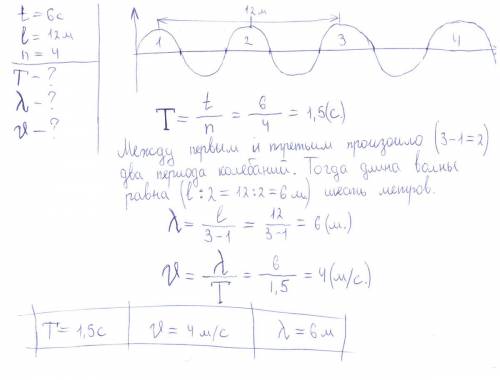 t = 6c
l = 12м
n = 4
T - ?
λ - ?
υ - ?
12м
1 2 3 4
T = t/n = 6/4 = 1,5(c.)
Между первым и третьим произошло (3-1=2)
два периода колебаний. Тогда длина волны
равна (l:2=12:2=6м) шесть метров.
λ = l/3-1 = 12/3-1 = 6(м.)
υ = λ/T = 6/1,5 = 4(м/с.)
T = 1,5c υ = 4м/с λ = 6м